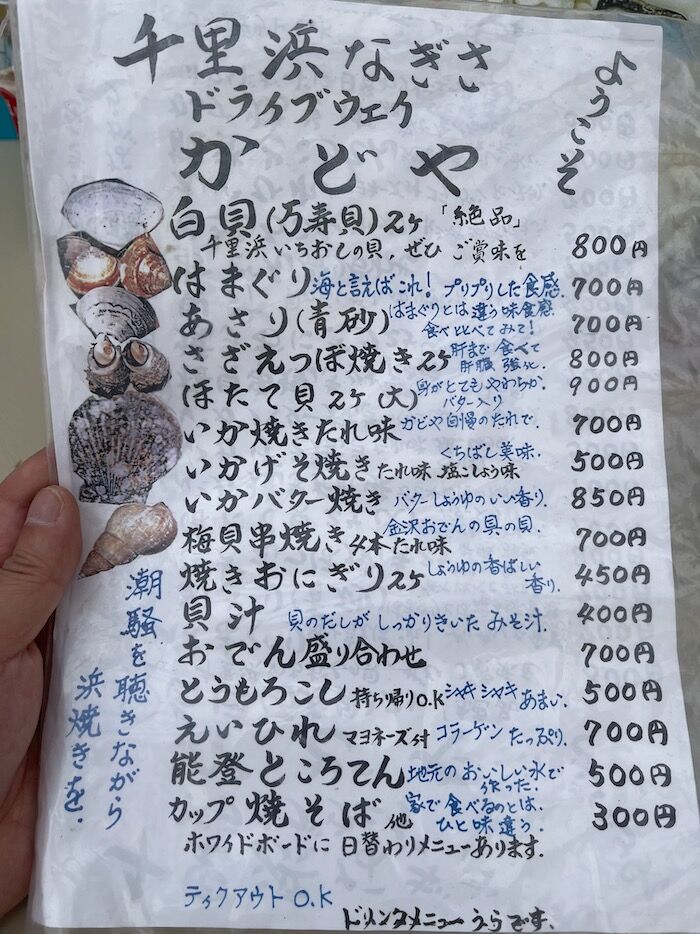 千里浜なぎさ
ドライブウェイ
ようこそ
かどや
白貝(万寿貝)2ケ「絶品」
千里浜いちおしの貝、ぜひご賞味を 800円
はまぐり 海と言えばこれ!プリプリした食感。 700円
あさり(青砂) はまぐりとは違う味食感 食べ比べてみて! 700円
さざえつぼ焼き2ケ 肝まで食べて 肝臓強化。 800円
ほたて貝2ケ(大) 身がとてもやわらか。バター入り 900円
いか焼きたれ味 かどや自慢のたれで。 700円
いかげそ焼き たれ味 塩こしょう味 くちばし美味。 500円
いかバター焼き バターしょうゆのいい香り。 850円
梅貝串焼き 4本たれ味 金沢おでんの具の貝。 700円
焼きおにぎり2ケ しょうゆの香ばしい香り。 450円
貝汁 貝のだしがしっかりきいたみそ汁。 400円
おでん盛り合わせ 700円
とうもろこし 持ち帰りO.K シャキシャキあまい。 500円
えいひれ マヨネーズ付 コラーゲンたっぷり。 700円
能登ところてん 地元のおいしい水で作った。 500円
カップ焼そば 他 家で食べるのとは、ひと味違う。 300円
ホワイドボードに日替わりメニューあります。
潮騒を聴きながら
浜焼きを。
ティクアウトO.K
ドリンクメニューうらです、